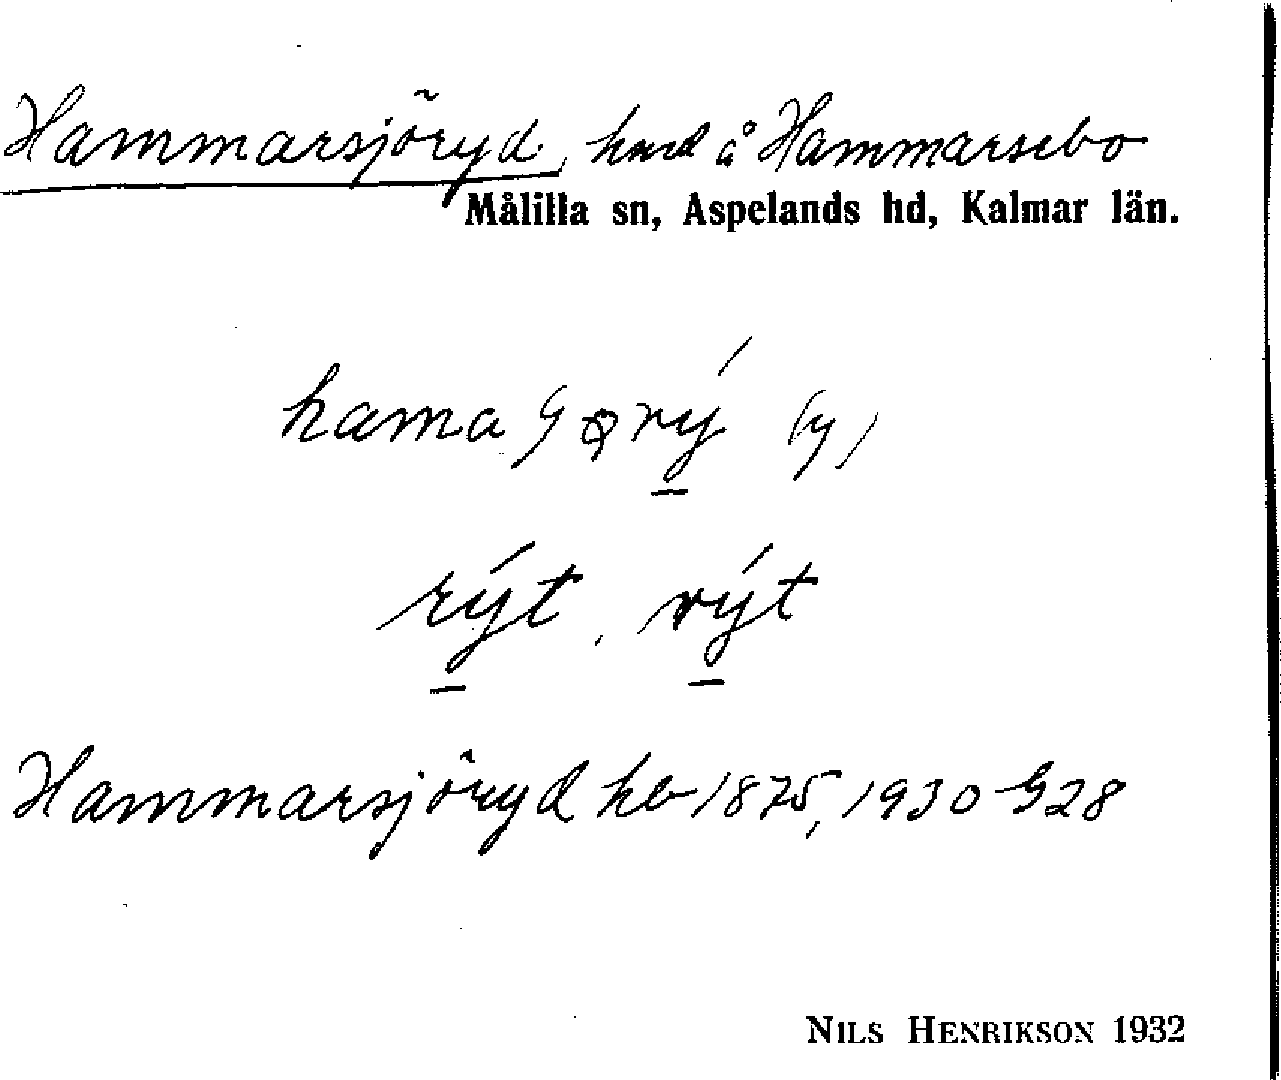 Hammarsjöryd, hmd å Hammarsebo
Målilla sn, Aspelands hd, Kalmar län.
rýt, rýt
Hammarsjöryd hb 1875, 1930 G28
NILS HENRIKSON 1932